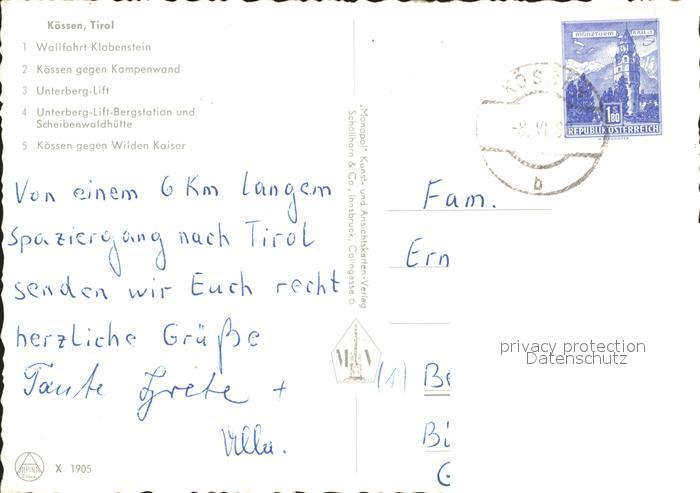 Kössen, Tirol
1 Wallfahrt Klobenstein
2 Kössen gegen Kampenwand
3 Unterberg-Lift
4 Unterberg-Lift-Bergstation und
Scheibenwaldhütte
5 Kössen gegen Wilden Kaiser
Von einem 6 Km langem
spaziergang nach Tirol
senden wir Euch recht
herzliche Grüße
Tante Grete +
X 1905
"Monopol" Kunst- und Ansichtskarten-Verlag
Schöllhorn & Co., Innsbruck, Colingasse 6
M V
MÜNZTURM HALL i. T.
1.80
REPUBLIK ÖSTERREICH
-8. VI
b
Fam.
Ern
(1) Be
Bü
G
privacy protection
Datenschutz